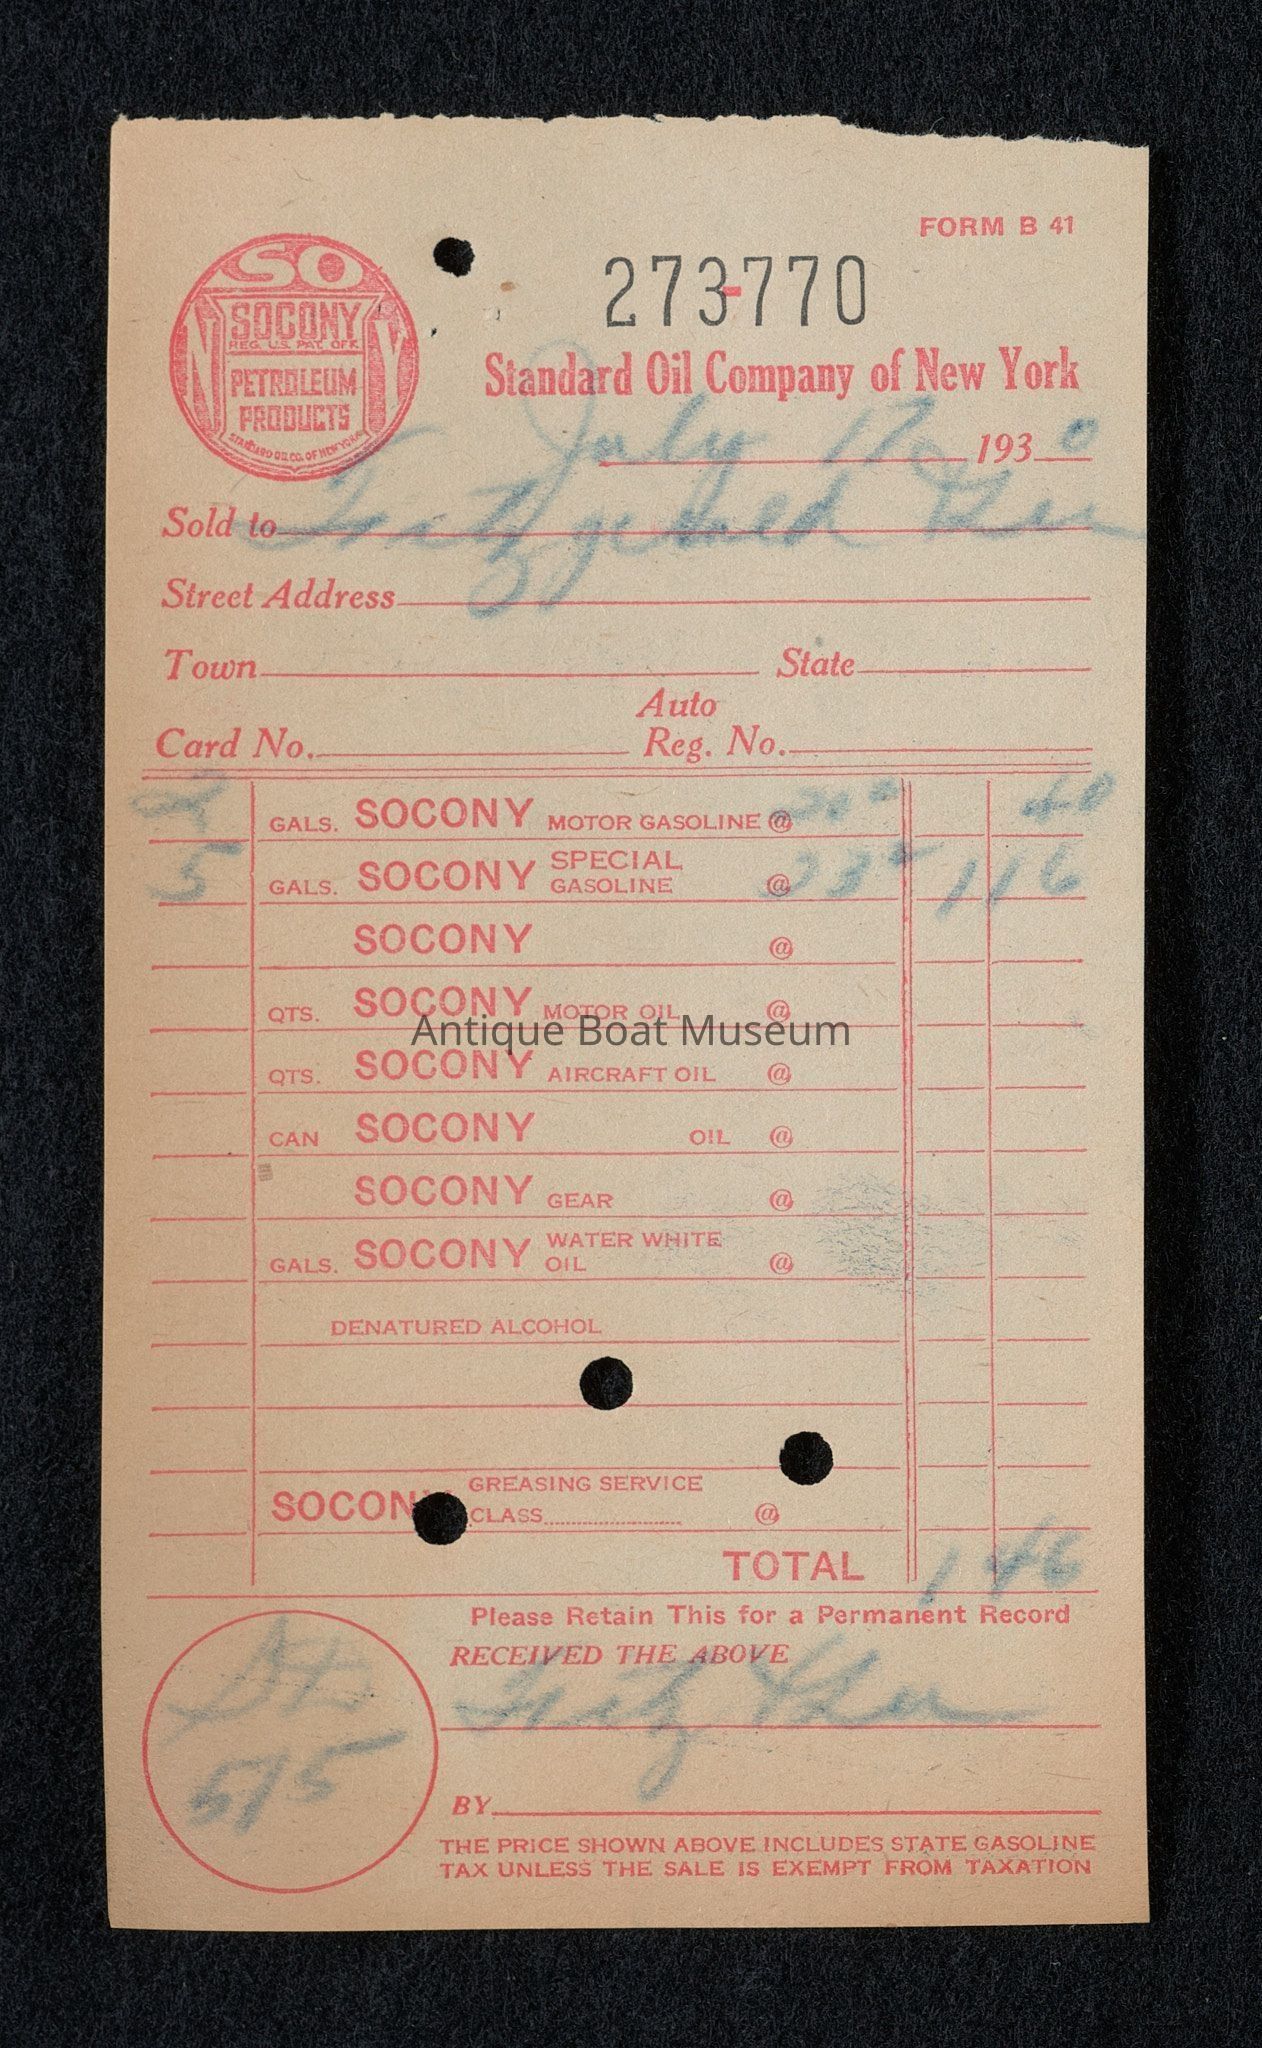 FORM B 41
SO
SOCONY
REG. U.S. PAT. OFF.
PETROLEUM
PRODUCTS
STANDARD OIL CO. OF NEW YORK
N Y
273-770
Standard Oil Company of New York
July 17 1930
Sold to Fitzgerald
Street Address
Town State
Auto
Card No. Reg. No.
2 GALS. SOCONY MOTOR GASOLINE @ 20 40
5 GALS. SOCONY SPECIAL GASOLINE @ 23 1 16
SOCONY @
QTS. SOCONY MOTOR OIL @
Antique Boat Museum
QTS. SOCONY AIRCRAFT OIL @
CAN SOCONY OIL @
SOCONY GEAR @
GALS. SOCONY WATER WHITE OIL @
DENATURED ALCOHOL
GREASING SERVICE
SOCONY CLASS @
TOTAL 1
Please Retain This for a Permanent Record
RECEIVED THE ABOVE
Fitz
515
BY
THE PRICE SHOWN ABOVE INCLUDES STATE GASOLINE
TAX UNLESS THE SALE IS EXEMPT FROM TAXATION